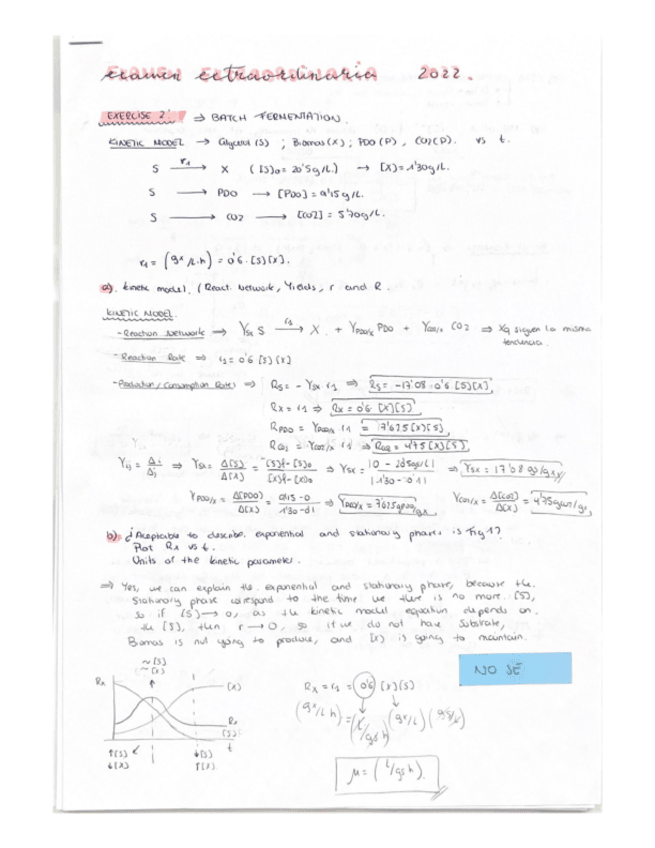 examen extraordinaria 2022.
EXERCISE 2: ⇒ BATCH FERMENTATION.
KINETIC MODEL → Glycerol (S) ; Biomas (X) ; PDO (P) , CO2 (P). vs t.
S —r1→ X ([S]0 = 20'5 g/L.) → [X] = 1'30 g/L.
S → PDO → [PDO] = 9'15 g/L.
S → CO2 → [CO2] = 5'70 g/L.
r1 = (gx/L·h) = 0'6 · [S][X].
a). kinetic model. (React. Network, Yields, r and R.
KINETIC MODEL.
- Reaction Network ⇒ Ysx S —r1→ X + YPDO/x PDO + YCO2/x CO2 ⇒ Xq siguen la misma
tendencia.
- Reaction Rate ⇒ r1 = 0'6 [S][X]
- Production/Consumption Rate) ⇒ Rs = - Ysx r1 ⇒ Rs = -17'08 · 0'6 [S][X],
Rx = r1 ⇒ Rx = 0'6 [X][S]
RPDO = YPDO/x r1 = 7'625 [X][S],
RCO2 = YCO2/x r1 ⇒ RCO2 = 4'75 [X][S],
Yij = Δi/Δj ⇒ Ysx = Δ[S]/Δ[X] = [S]f-[S]0/[X]f-[X]0 ⇒ Ysx = |0 - 20'5 g/L|/|1'30 - 0'1| ⇒ Ysx = 17'08 gs/gx
YPDO/x = Δ[PDO]/Δ[X] = 9'15-0/1'30-0'1 ⇒ YPDO/x = 7'625 gPDO/gx YCO2/x = Δ[CO2]/Δ[X] = 4'75 gCO2/gx
b) ¿Aceptable to describe exponential and stationary phases is Fig 1?
Plot Rx vs t.
Units of the kinetic parameter.
⇒ Yes, we can explain the exponential and stationary phase, because the
stationary phase correspond to the time we there is no more [S],
so if [S] → 0, as the kinetic model equation depends on
the [S], then r → 0, so if we do not have substrate,
Biomas is not going to produce, and [X] is going to maintain.
NO SÉ
~ [S]
~ [X]
Rx
[X]
Rx
[S]
t
↑[S]
↓[X]
↓[S]
↑[X]
Rx = r1 = 0'6 [X][S]
(gx/L h) = (L/gs h) (gx/L) (gs/L)
μ = (L/gs h).